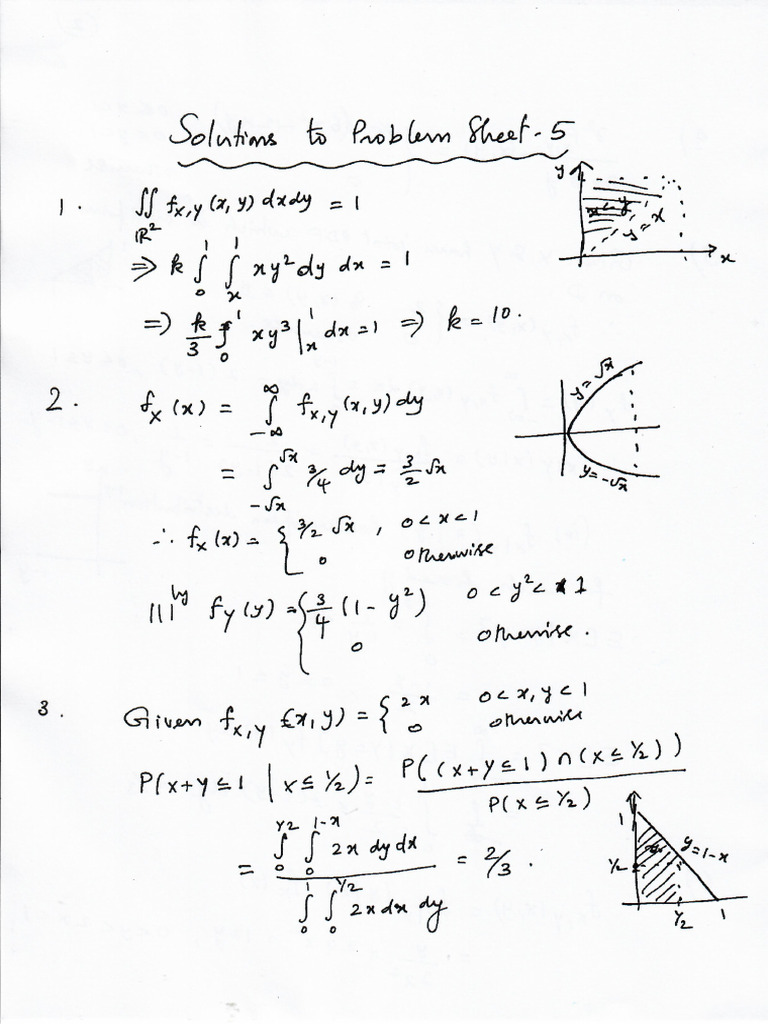 Solutions to Problem Sheet-5
1. ∬_{ℝ²} f_{X,Y}(x,y) dxdy = 1
y
x<y
y=x
x
⇒ k ∫_0^1 ∫_x^1 xy² dy dx = 1
⇒ k/3 ∫_0^1 xy³ |_x^1 dx = 1 ⇒ k = 10.
2. f_X(x) = ∫_{-∞}^{∞} f_{X,Y}(x,y) dy
y=√x
y=-√x
= ∫_{-√x}^{√x} 3/4 dy = 3/2 √x
∴ f_X(x) = { 3/2 √x , 0<x<1
0 otherwise
|||ly f_Y(y) = { 3/4 (1-y²) 0<y²<1
0 otherwise.
3. Given f_{X,Y}(x,y) = { 2x 0<x,y<1
0 otherwise
P(X+Y≤1 | X≤1/2) = P((X+Y≤1)∩(X≤1/2)) / P(X≤1/2)
= ∫_0^{1/2} ∫_0^{1-x} 2x dy dx / ∫_0^1 ∫_0^{1/2} 2x dx dy = 2/3.
1
y=1-x
1/2
1/2
1